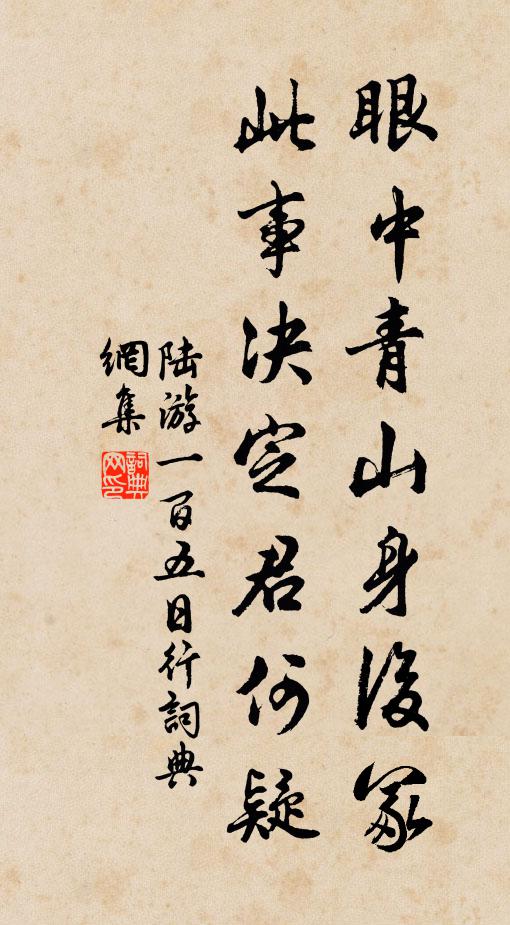 眼中青山身後冢
此事決定君何疑
陸游一百五日行詞典
網集
詞典网印